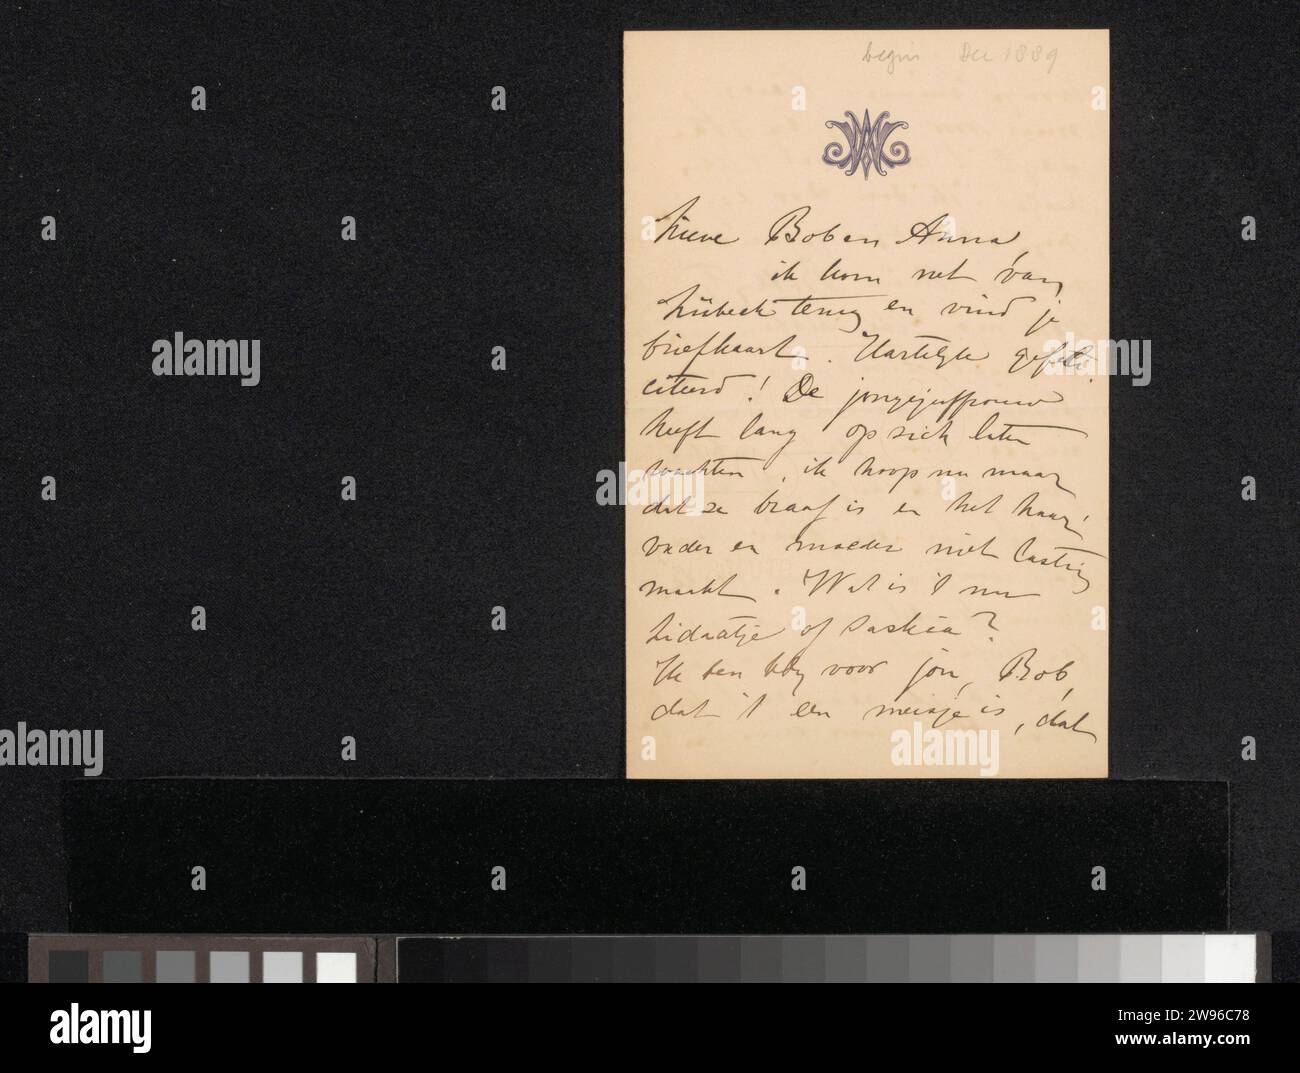 begin Dec 1889
Lieve Bob en Anna,
ik kom net van
Lübeck terug en vind je
briefkaart. Hartelijk gefeli-
citeerd! De jongejuffrouw
heeft lang op zich laten
wachten, ik hoop nu maar
dat ze braaf is en het haar
vader en moeder niet lastig
maakt. Wat is 't nu
Lidaatje of Saskia?
Ik ben blij voor jou, Bob,
dat 't een meisje is, dat
alamy
Image ID: 2W96C78
www.alamy.com